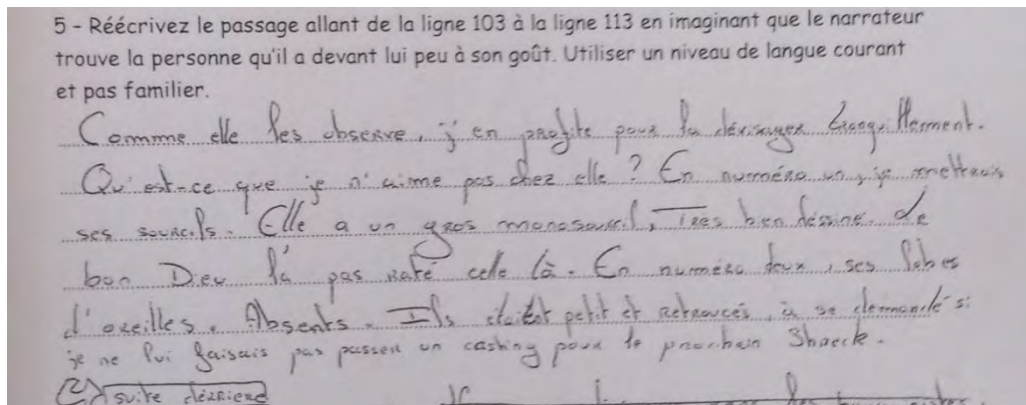 5 - Réécrivez le passage allant de la ligne 103 à la ligne 113 en imaginant que le narrateur
trouve la personne qu'il a devant lui peu à son goût. Utiliser un niveau de langue courant
et pas familier.
Comme elle les observe, j'en profite pour la dévisager tranquillement.
Qu'est-ce que je n'aime pas chez elle ? En numéro un, je mettrais
ses sourcils. Elle a un gros monosourcil, Très bien dessiné, de
bon Dieu l'a pas raté celle là. En numéro deux, ses lobes
d'oreilles. Absents. Ils étaient petit et retroucés, à se demandé si
je ne lui faisais pas passer un casting pour le prochain Shreck.
(2) suite dèrriere